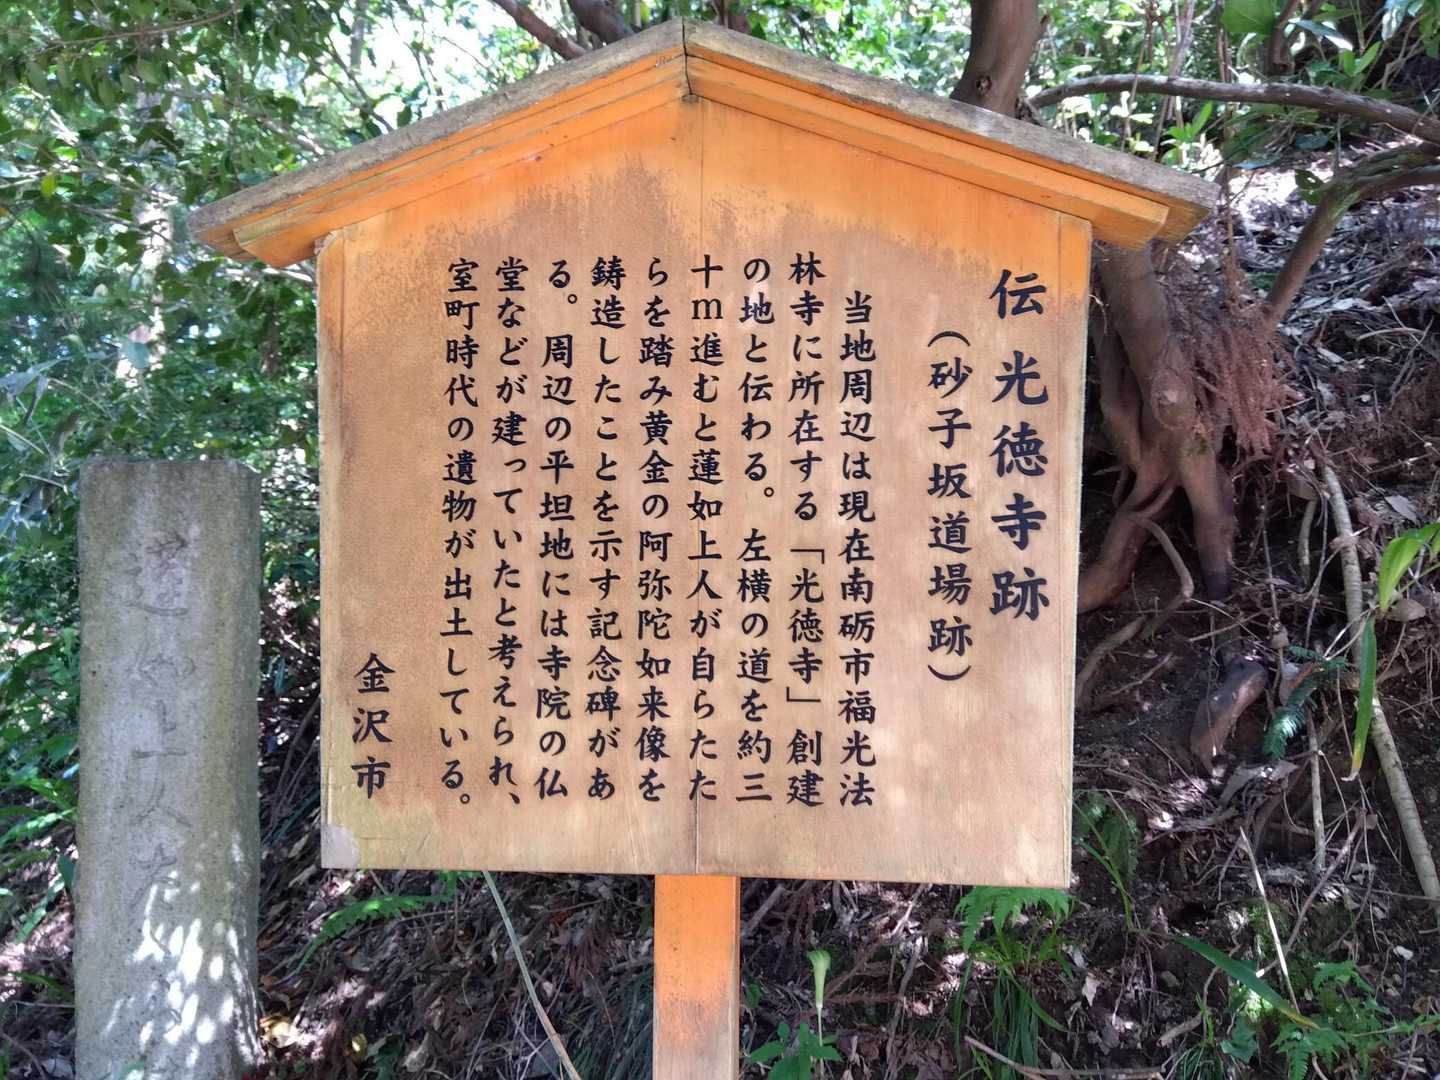 伝 光徳寺跡
（砂子坂道場跡）
当地周辺は現在南砺市福光法
林寺に所在する「光徳寺」創建
の地と伝わる。左横の道を約三
十ｍ進むと蓮如上人が自らたた
らを踏み黄金の阿弥陀如来像を
鋳造したことを示す記念碑があ
る。周辺の平坦地には寺院の仏
堂などが建っていたと考えられ、
室町時代の遺物が出土している。
金沢市
蓮如上人